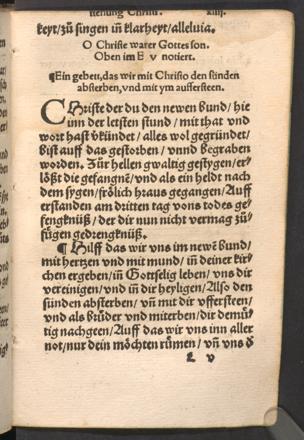 stehung Christi. xiiij.
keyt/zů singen iñ klarheyt/alleluia.
O Christe warer Gottes son.
Oben im B v notiert.
¶Ein gebett,das wir mit Christo den sünden
absterben,vnd mit ym auffersteen.
CHriste der du den newen bund/hie
inn der letsten stund/mit that vnd
wort hast v̈kündet/alles wol gegründet/
bist auff das gestorben/vnnd begraben
worden. Zůr hellen gwaltig gestygen/er
lößt die gefangnē/vnd als ein heldt nach
dem sygen/frölich hraus gegangen/Auff
erstanden am dritten tag vons todes ge/
fengknüß/der dir nun nicht vermag zů/
fügen gedrengknüß.
¶ Hilff das wir vns im newē bund/
mit hertzen vnd mit mund/iñ deiner kir/
chen ergeben/iñ Gottselig leben/vns dir
vereinigen/vnd iñ dir heyligen/Also den
sünden absterben/vñ mit dir vffersteen/
vnd als brůder vnd miterben/dir demü/
tig nachgeen/Auff das wir vns inn aller
not/nur dein möchten růmen/vñ vns d̈
L v